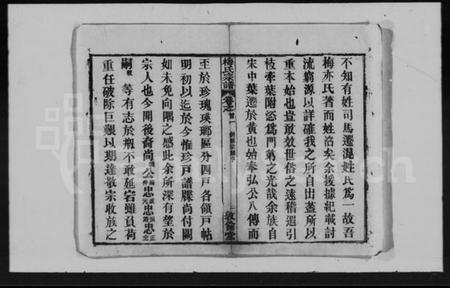 不知有姓司馬遷混姓氏為一故吾
梅亦氏著而姓洛矣余援據紀載討
流窮源以詳確我之所自由蓋所以
重本始也豈敢效世俗之遠稽遐引
枝牽葉附惢為門第之光哉余族自
宋中葉遷於黃也始奉弘公八傳而
梅氏宗譜
卷之
敦倫堂
至於珍瑰瑛瑯區分四戶各領戶帖
明初以迄於今惟珍戶譜牒尚付闕
如未免向隅之感此余所深有望於
宗人也今開後裔尚公忠忠忠
嗣等有志於期不敢延宕雖負荷
重任破除巨艱以期達敬宗收族之